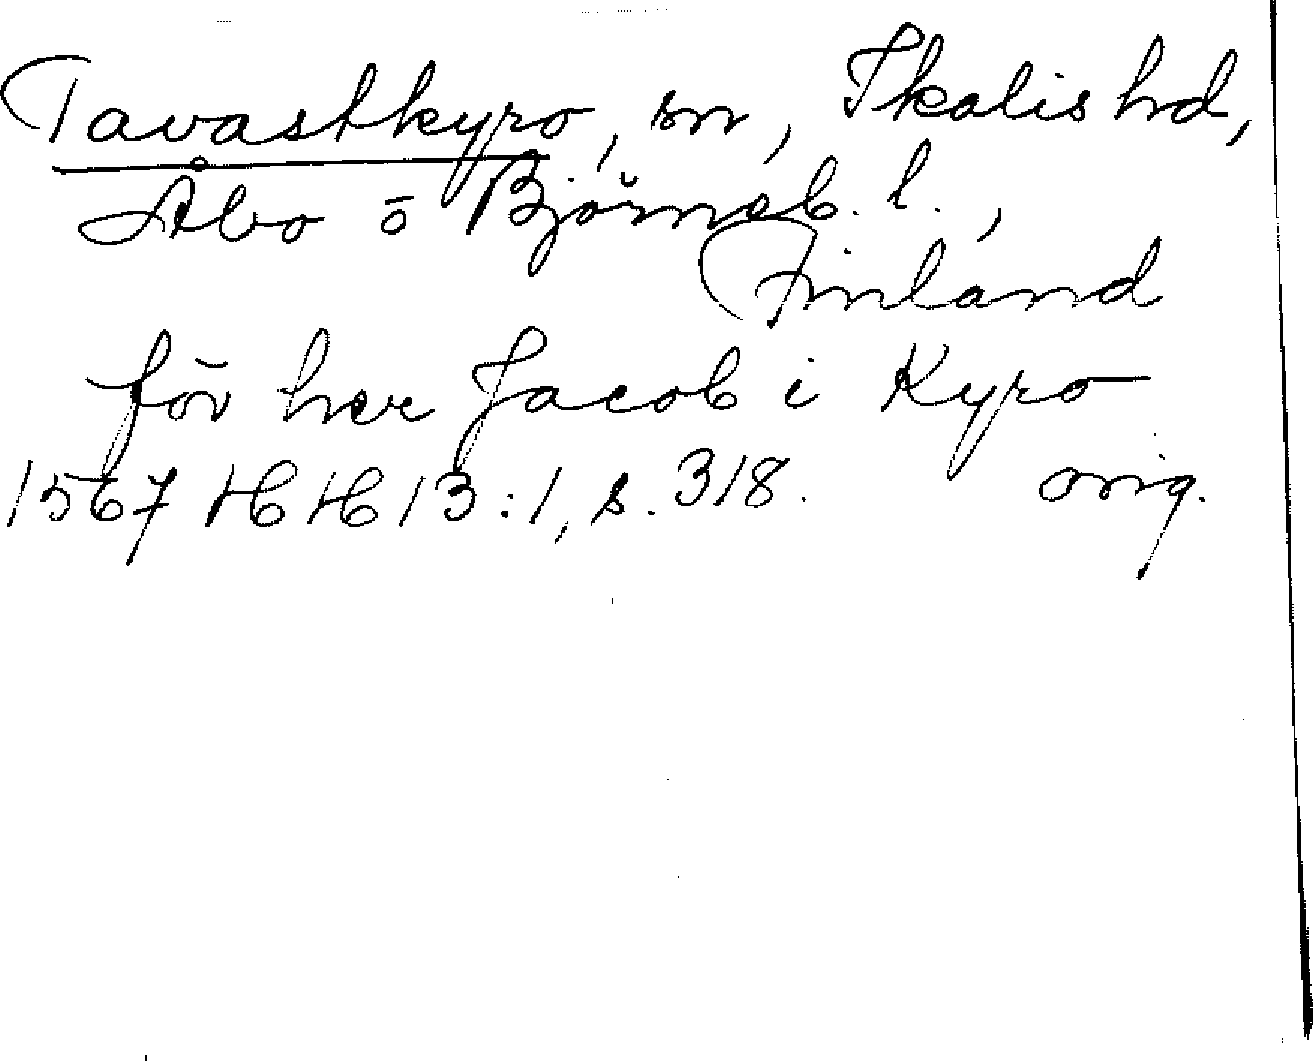 Tavastkyro, sn, Ikalis hd,
Åbo ō Björneb. l.,
Finland
för her Jacob i Kyro
1567 HH 13:1, s. 318. orig.